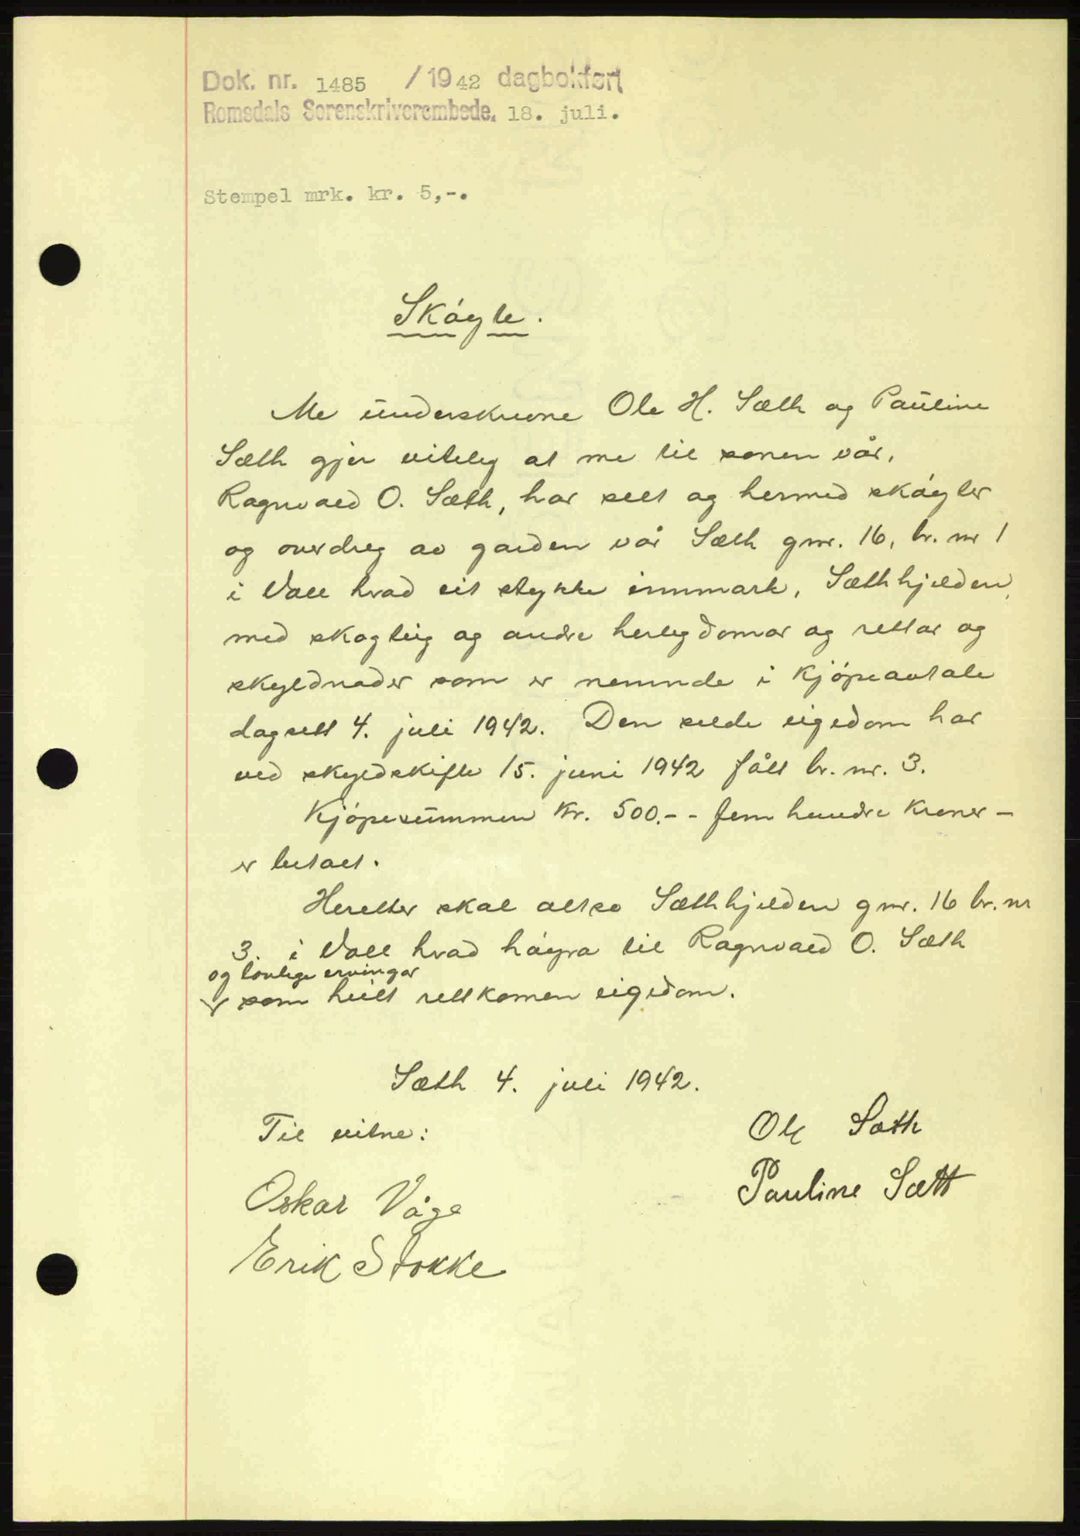 Dok. nr. 1485 / 1942 dagbokført
Romsdals Sorenskriverembede, 18. juli.
Stempel mrk. kr. 5,-.
Skøyte.
Me underskrivne Ole H. Sæth og Pauline
Sæth gjer viteleg at me til sonen vår,
Ragnvald O. Sæth, har selt og hermed skøyter
og overdreg av garden vår Sæth gnr. 16, br. nr 1
i Voll herad eit stykke innmark, Sæthhjelden,
med skogteig og andre herlegdomar og rettar og
skyldnader som er nemnde i kjøpeavtale
dagsett 4. juli 1942. Den selde eigedom har
ved skyldskifte 15. juni 1942 fått br. nr. 3.
Kjøpesummen kr. 500.-- fem hundre kroner -
er betalt.
Heretter skal altso Sæthhjelden gnr. 16 br. nr
3. i Voll herad høyra til Ragnvald O. Sæth
og lovlege ervingar
som heilt rettkomen eigedom.
Sæth 4. juli 1942.
Til vitne:
Ole Sæth
Pauline Sæth
Oskar Våge
Erik Stokke